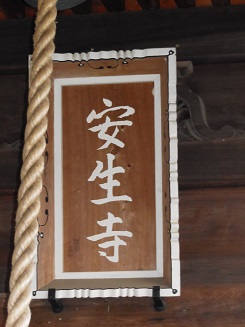 安生寺